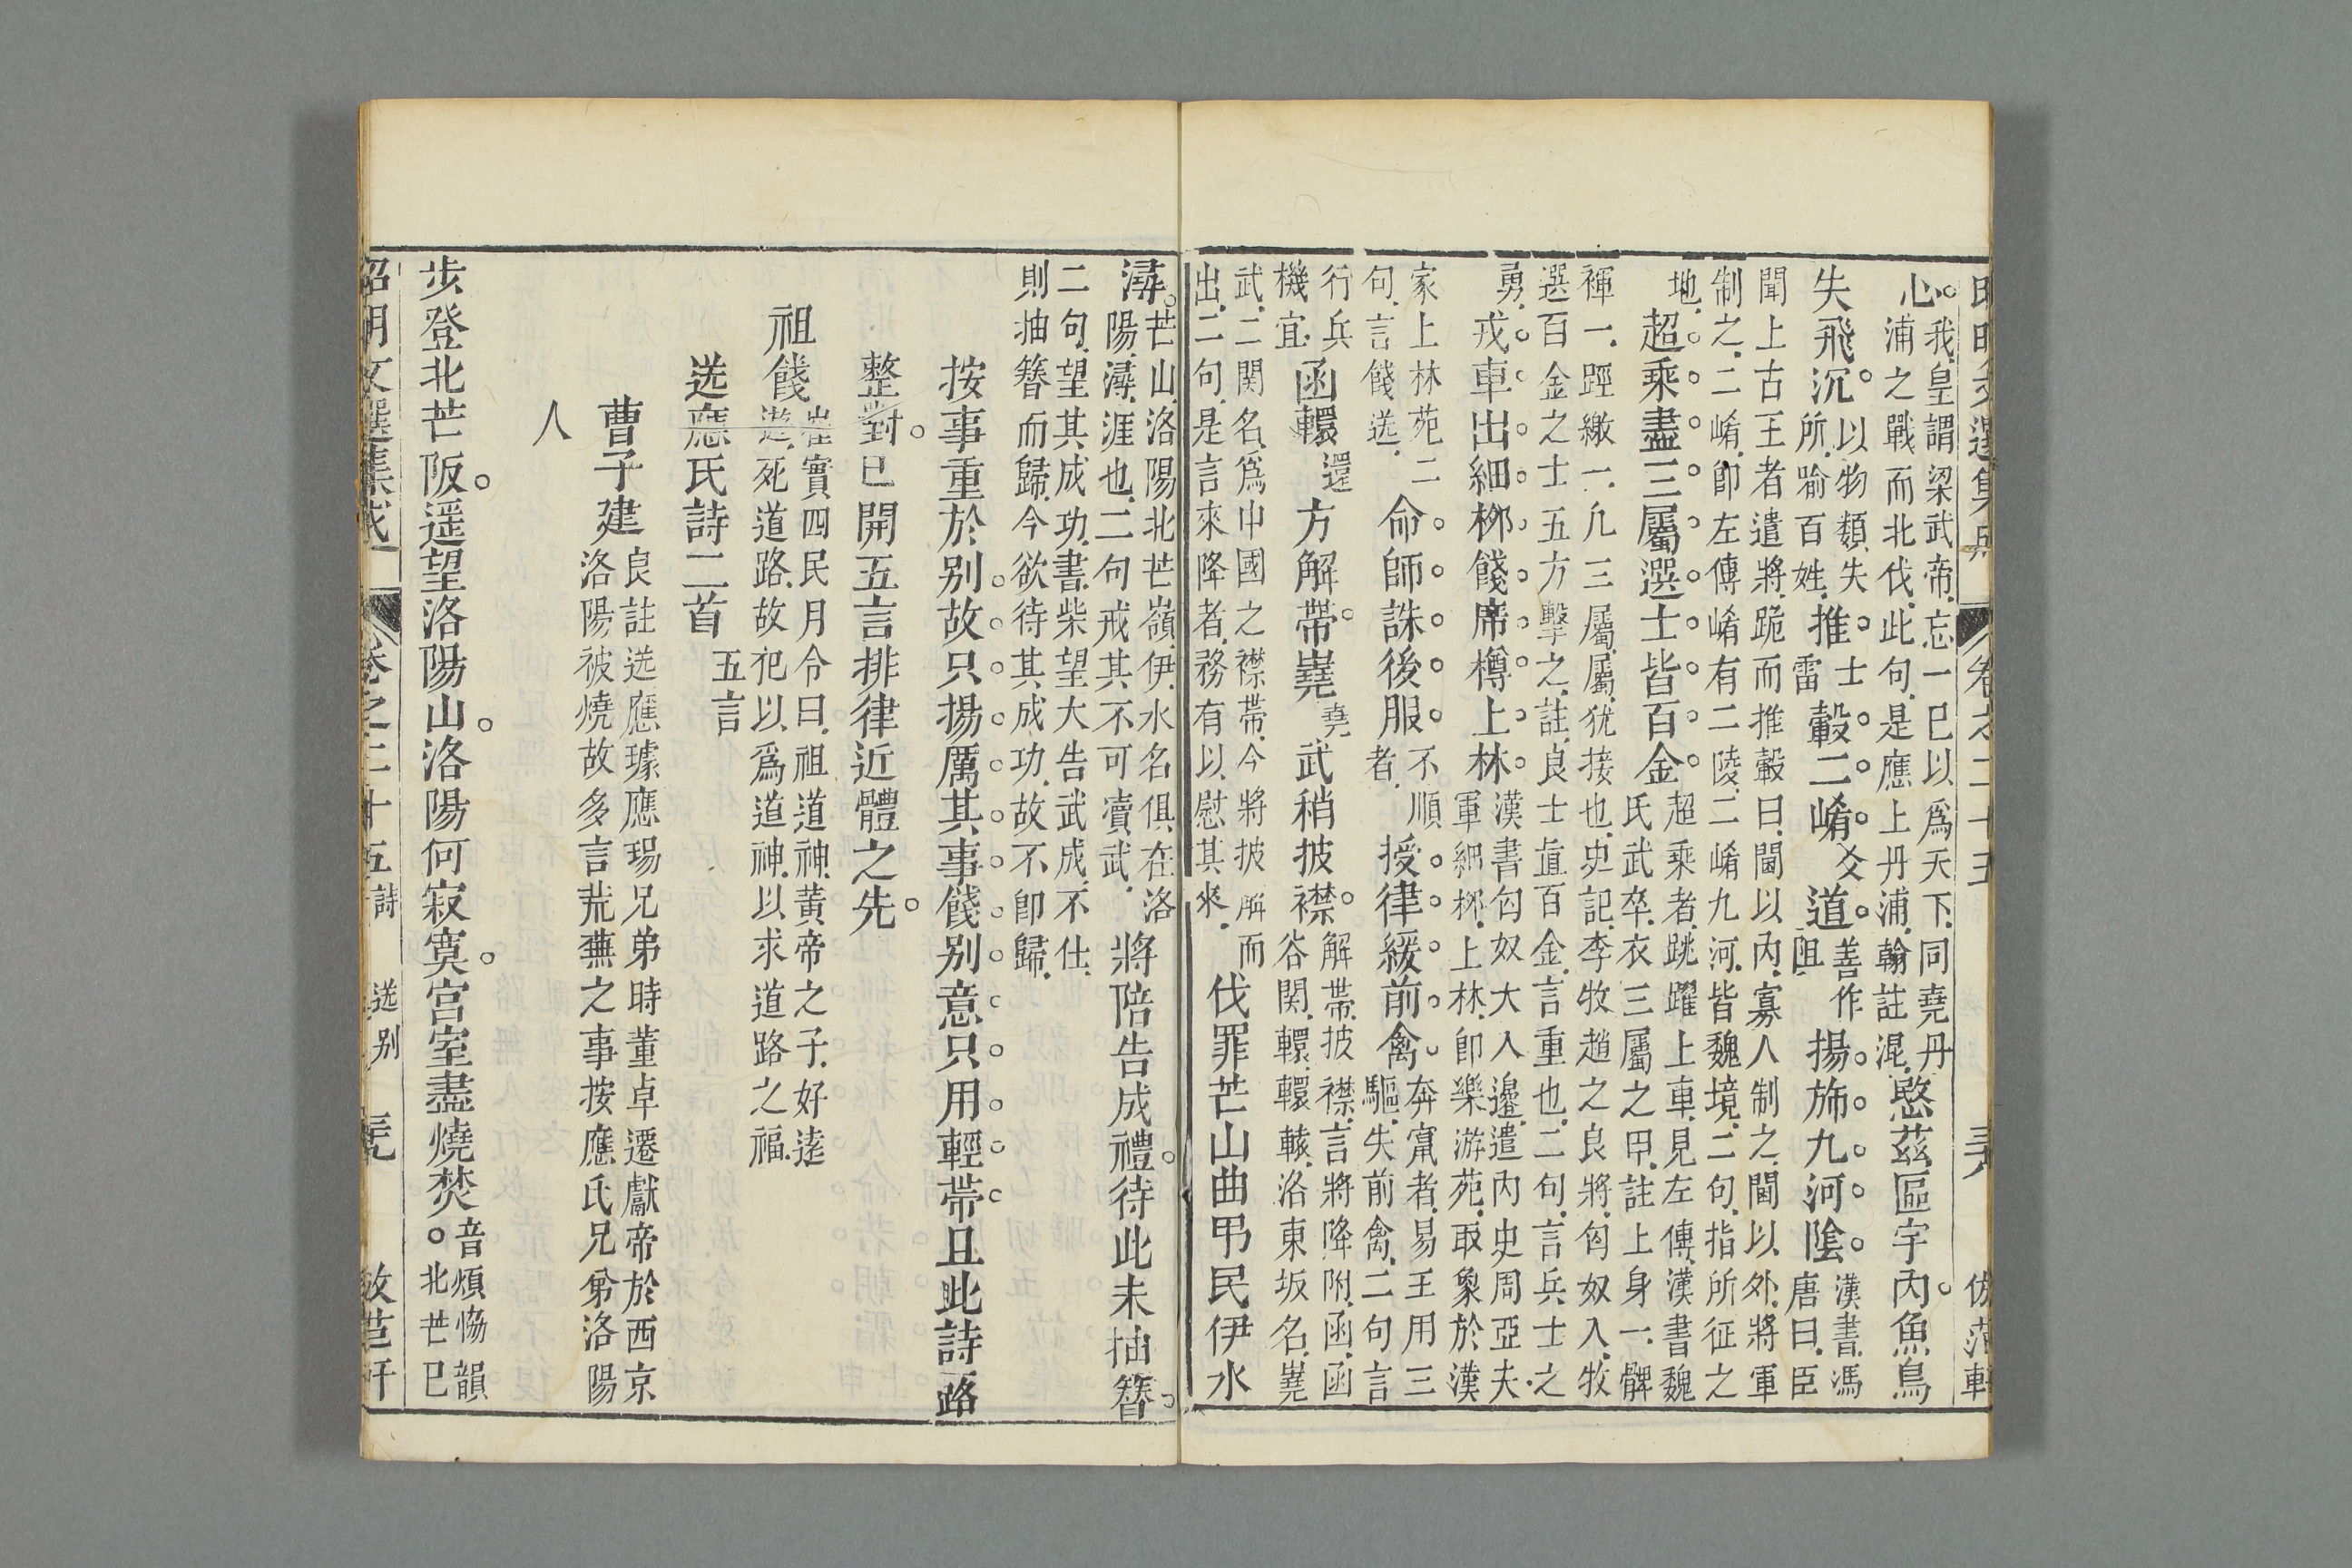 心。我皇謂梁武帝忘一巳以爲天下同堯丹
浦之戰而北伐此句是應上丹浦翰註混
愍茲區宇内。魚鳥
失飛沉。以物類失
所喻百姓
推士
雷
轂二崤爻道善作
阻
揚斾九河陰。漢書馮
唐曰臣
聞上古王者遣將跪而推轂曰閫以内寡人制之閫以外將軍
制之二崤卽左傳崤有二陵二崤九河皆魏境二句指所征之
地
超乘盡三屬選士皆百金。超乘者跳躍上車見左傳漢書魏
氏武卒衣三屬之甲註上身一髀
褌一踁繳一凢三屬屬犹接也史記李牧趙之良將匈奴入牧
選百金之士五方擊之註良士直百金言重也二句言兵士之
勇
戎車出細栁餞席樽上林。漢書匈奴大入邊遣内史周亞夫
軍細栁上林卽樂游苑取象於漢
家上林苑二
句言餞送
命師誅後服。不順
者
授律緩前禽。奔竄者易王用三
驅失前禽二句言
行兵
機宜
函轘還方解帶。嶤堯武稍披襟。解帶披襟言將降附函函
谷関轘轘轅洛東坂名嶤
武二関名爲中國之襟帶今將披解而
出二句是言來降者務有以慰其來
伐罪芒山曲弔民伊水
潯。芒山洛陽北芒嶺伊水名俱在洛
陽潯涯也二句戒其不可賣武
將陪告成禮。待此未抽簪。
二句望其成功書柴望大告武成不仕
則抽簪而歸今欲待其成功故不卽歸
按事重於别故只揚厲其事餞别意只用輕帶且此詩路
整對。已開五言排律近體之先。
祖餞崔實四民月令曰祖道神黄帝之子好遠
遊死道路故祀以爲道神以求道路之福
送應氏詩二首五言
曹子建良註送應璩應瑒兄弟時董卓遷獻帝於西京
洛陽被燒故多言荒蕪之事按應氏兄弟洛陽
人
步登北芒阪。遥望洛陽山。洛陽何寂寞。宫室盡燒焚。音煩恊韻
北芒巳
昭明文選集成 卷之二十五 詩 送别